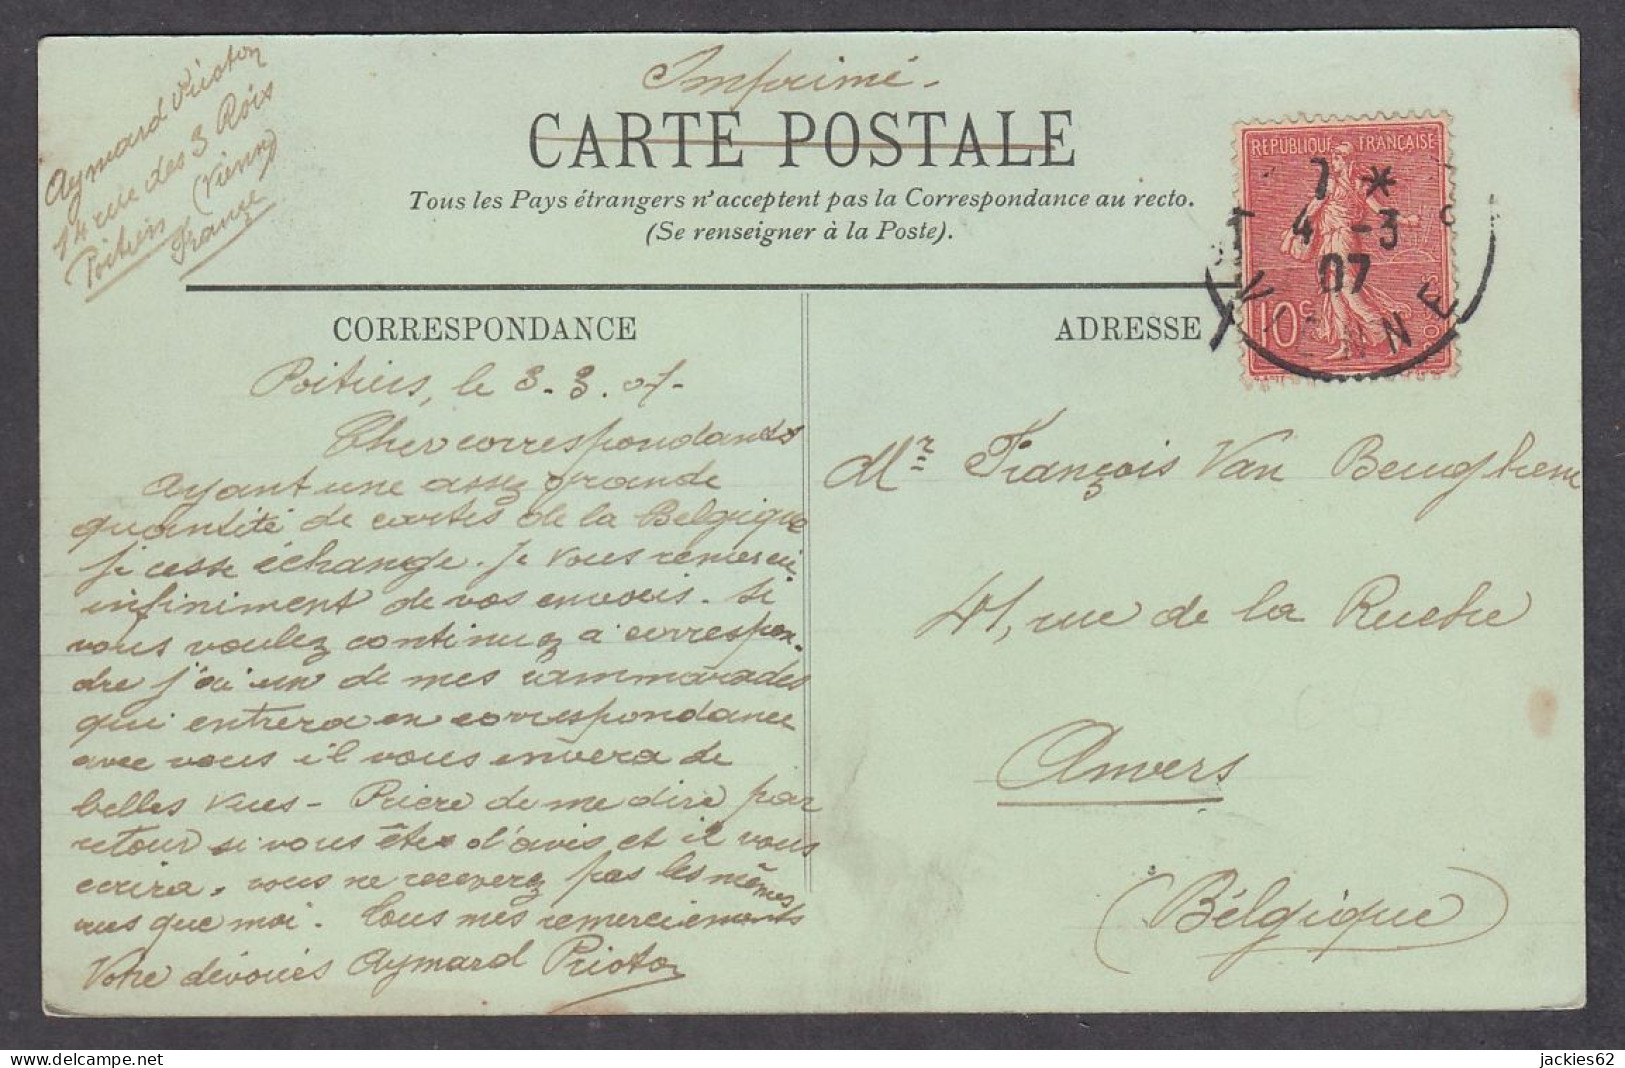 Aymard Prioton
14 rue des 3 Rois
Poitiers (Vienne)
France
Imprimé.
CARTE POSTALE
Tous les Pays étrangers n'acceptent pas la Correspondance au recto.
(Se renseigner à la Poste).
REPUBLIQUE FRANÇAISE
7 *
4 -3
07
VIENNE
10 c
CORRESPONDANCE
Poitiers, le 3-3.07-
Cher correspondants
Ayant une assez grande
quantité de cartes de la Belgique
je cesse échange. Je vous remercie
infiniment de vos envois. Si
vous voulez continuez à correspon-
dre j'ai un de mes cammarades
qui entrera en correspondance
avec vous il vous envera de
belles vues - Prière de me dire par
retour si vous êtes d'avis et il vous
ecrira. vous ne recevrez pas les mêmes
vues que moi. Tous mes remerciements
Votre dévoués Aymard Prioton
ADRESSE
Mr François Van Beughem
41, rue de la Ruche
Anvers
(Bélgique)
jackies62